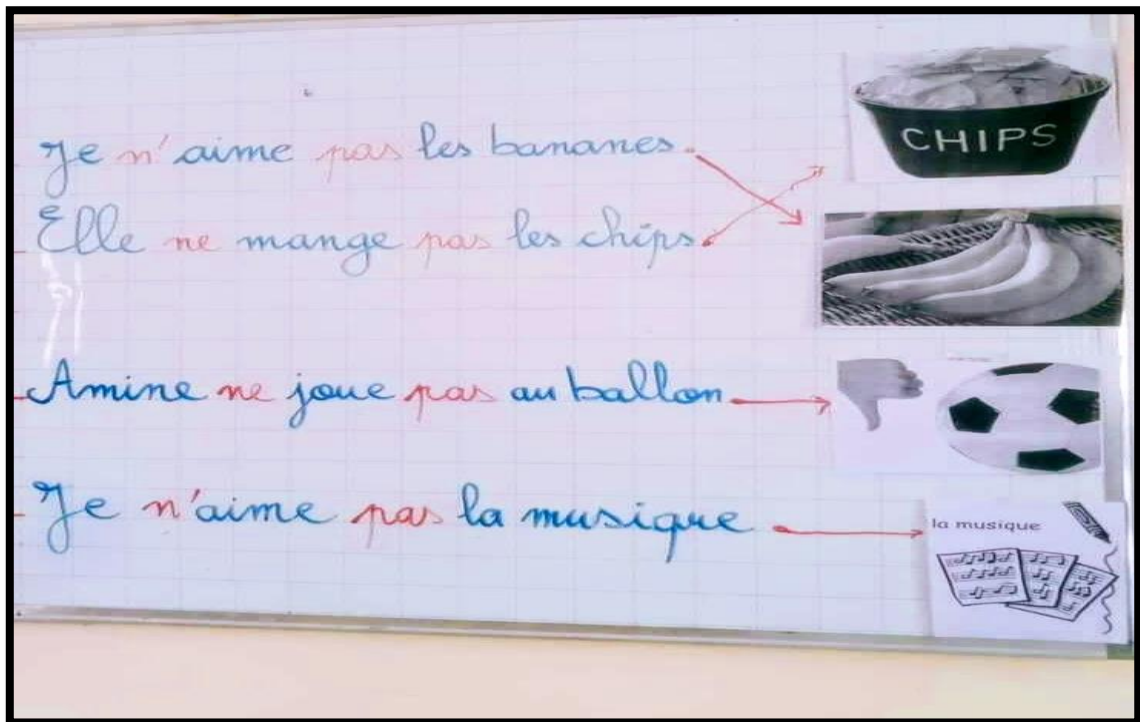 CHIPS
Je n'aime pas les bananes.
Elle ne mange pas les chips.
Amine ne joue pas au ballon.
Je n'aime pas la musique
la musique